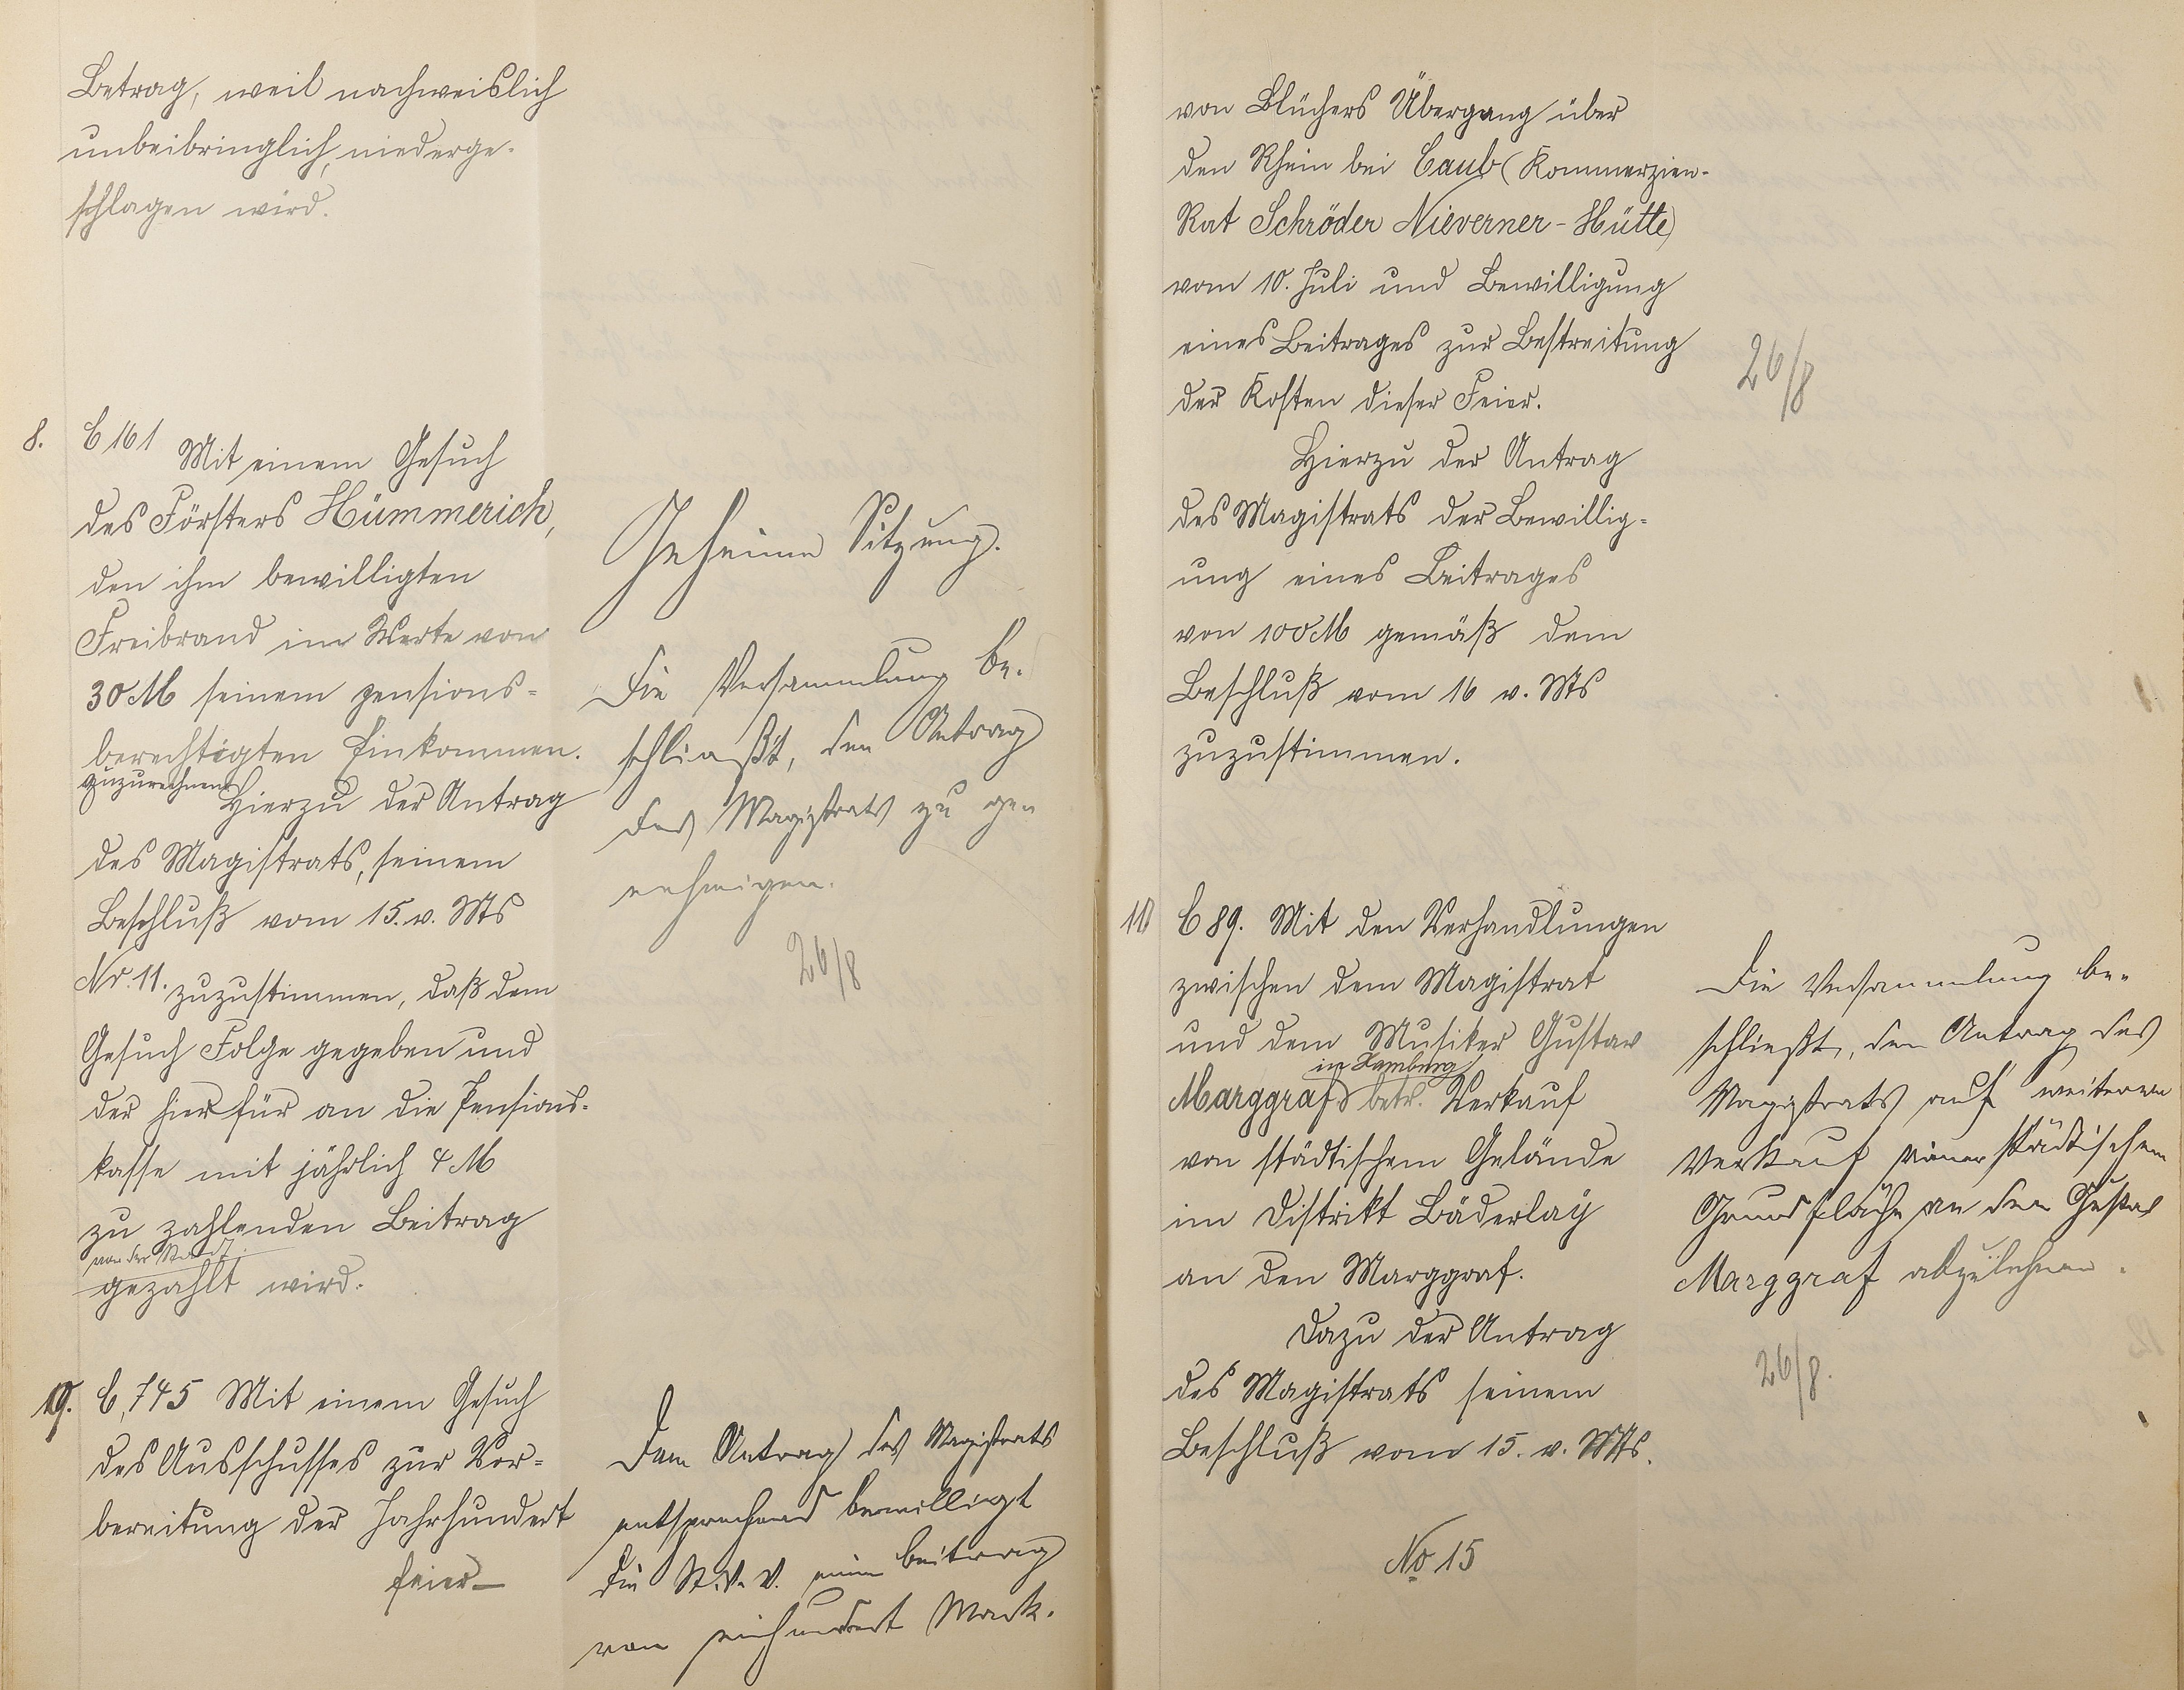 Betrag, weil nachweislich
unbeibringlich, niederge-
schlagen wird.
8. C 161 Mit einem Gesuch
des Försters Hümmerich,
den ihm bewilligten
Freibrand im Werte von
30 M seinem pensions-
berechtigten Einkommen.
zuzurechnen
Hierzu der Antrag
des Magistrats, seinem
Beschluß vom 15. v. Mts
Nr. 11. zuzustimmen, daß dem
Gesuch Folge gegeben und
der hierfür an die Pensions-
kasse mit jährlich 4 M
zu zahlenden Beitrag
von der Stadt
gezahlt wird.
Geheime Sitzung.
Die Versammlung be-
schließt, den Antrag
des Magistrats zu gen
nehmigen.
26/8
9. C, 745 Mit einem Gesuch
des Ausschusses zur Vor-
bereitung der Jahrhundert
feier
Dem Antrag des Magistrats
entsprechend bewilligt
die St. V. V. einen Beitrag
von einhundert Mark.
von Blüchers Übergang über
den Rhein bei Caub (Kommerzien-
Rat Schröder Nieverner-Hütte)
vom 10. Juli und Bewilligung
eines Beitrages zur Bestreitung
der Kosten dieser Feier.
Hierzu der Antrag
des Magistrats der Bewillig-
ung eines Beitrages
von 100 M gemäß dem
Beschluß vom 16 v. Mts
zuzustimmen.
26/8
10 C 89. Mit den Verhandlungen
zwischen dem Magistrat
und dem Musiker Gustav
in Hamburg
Marggraf betr. Verkauf
von städtischem Gelände
im Distrikt Bäderlay
an den Marggraf.
Dazu der Antrag
des Magistrats seinem
Beschluß vom 15. v. Mts.
No 15
Die Versammlung be-
schließt, den Antrag des
Magistrats auf weiteren
Verkauf einer städtischen
Grundfläche an den Gustav
Marggraf abzulehnen.
26/8.